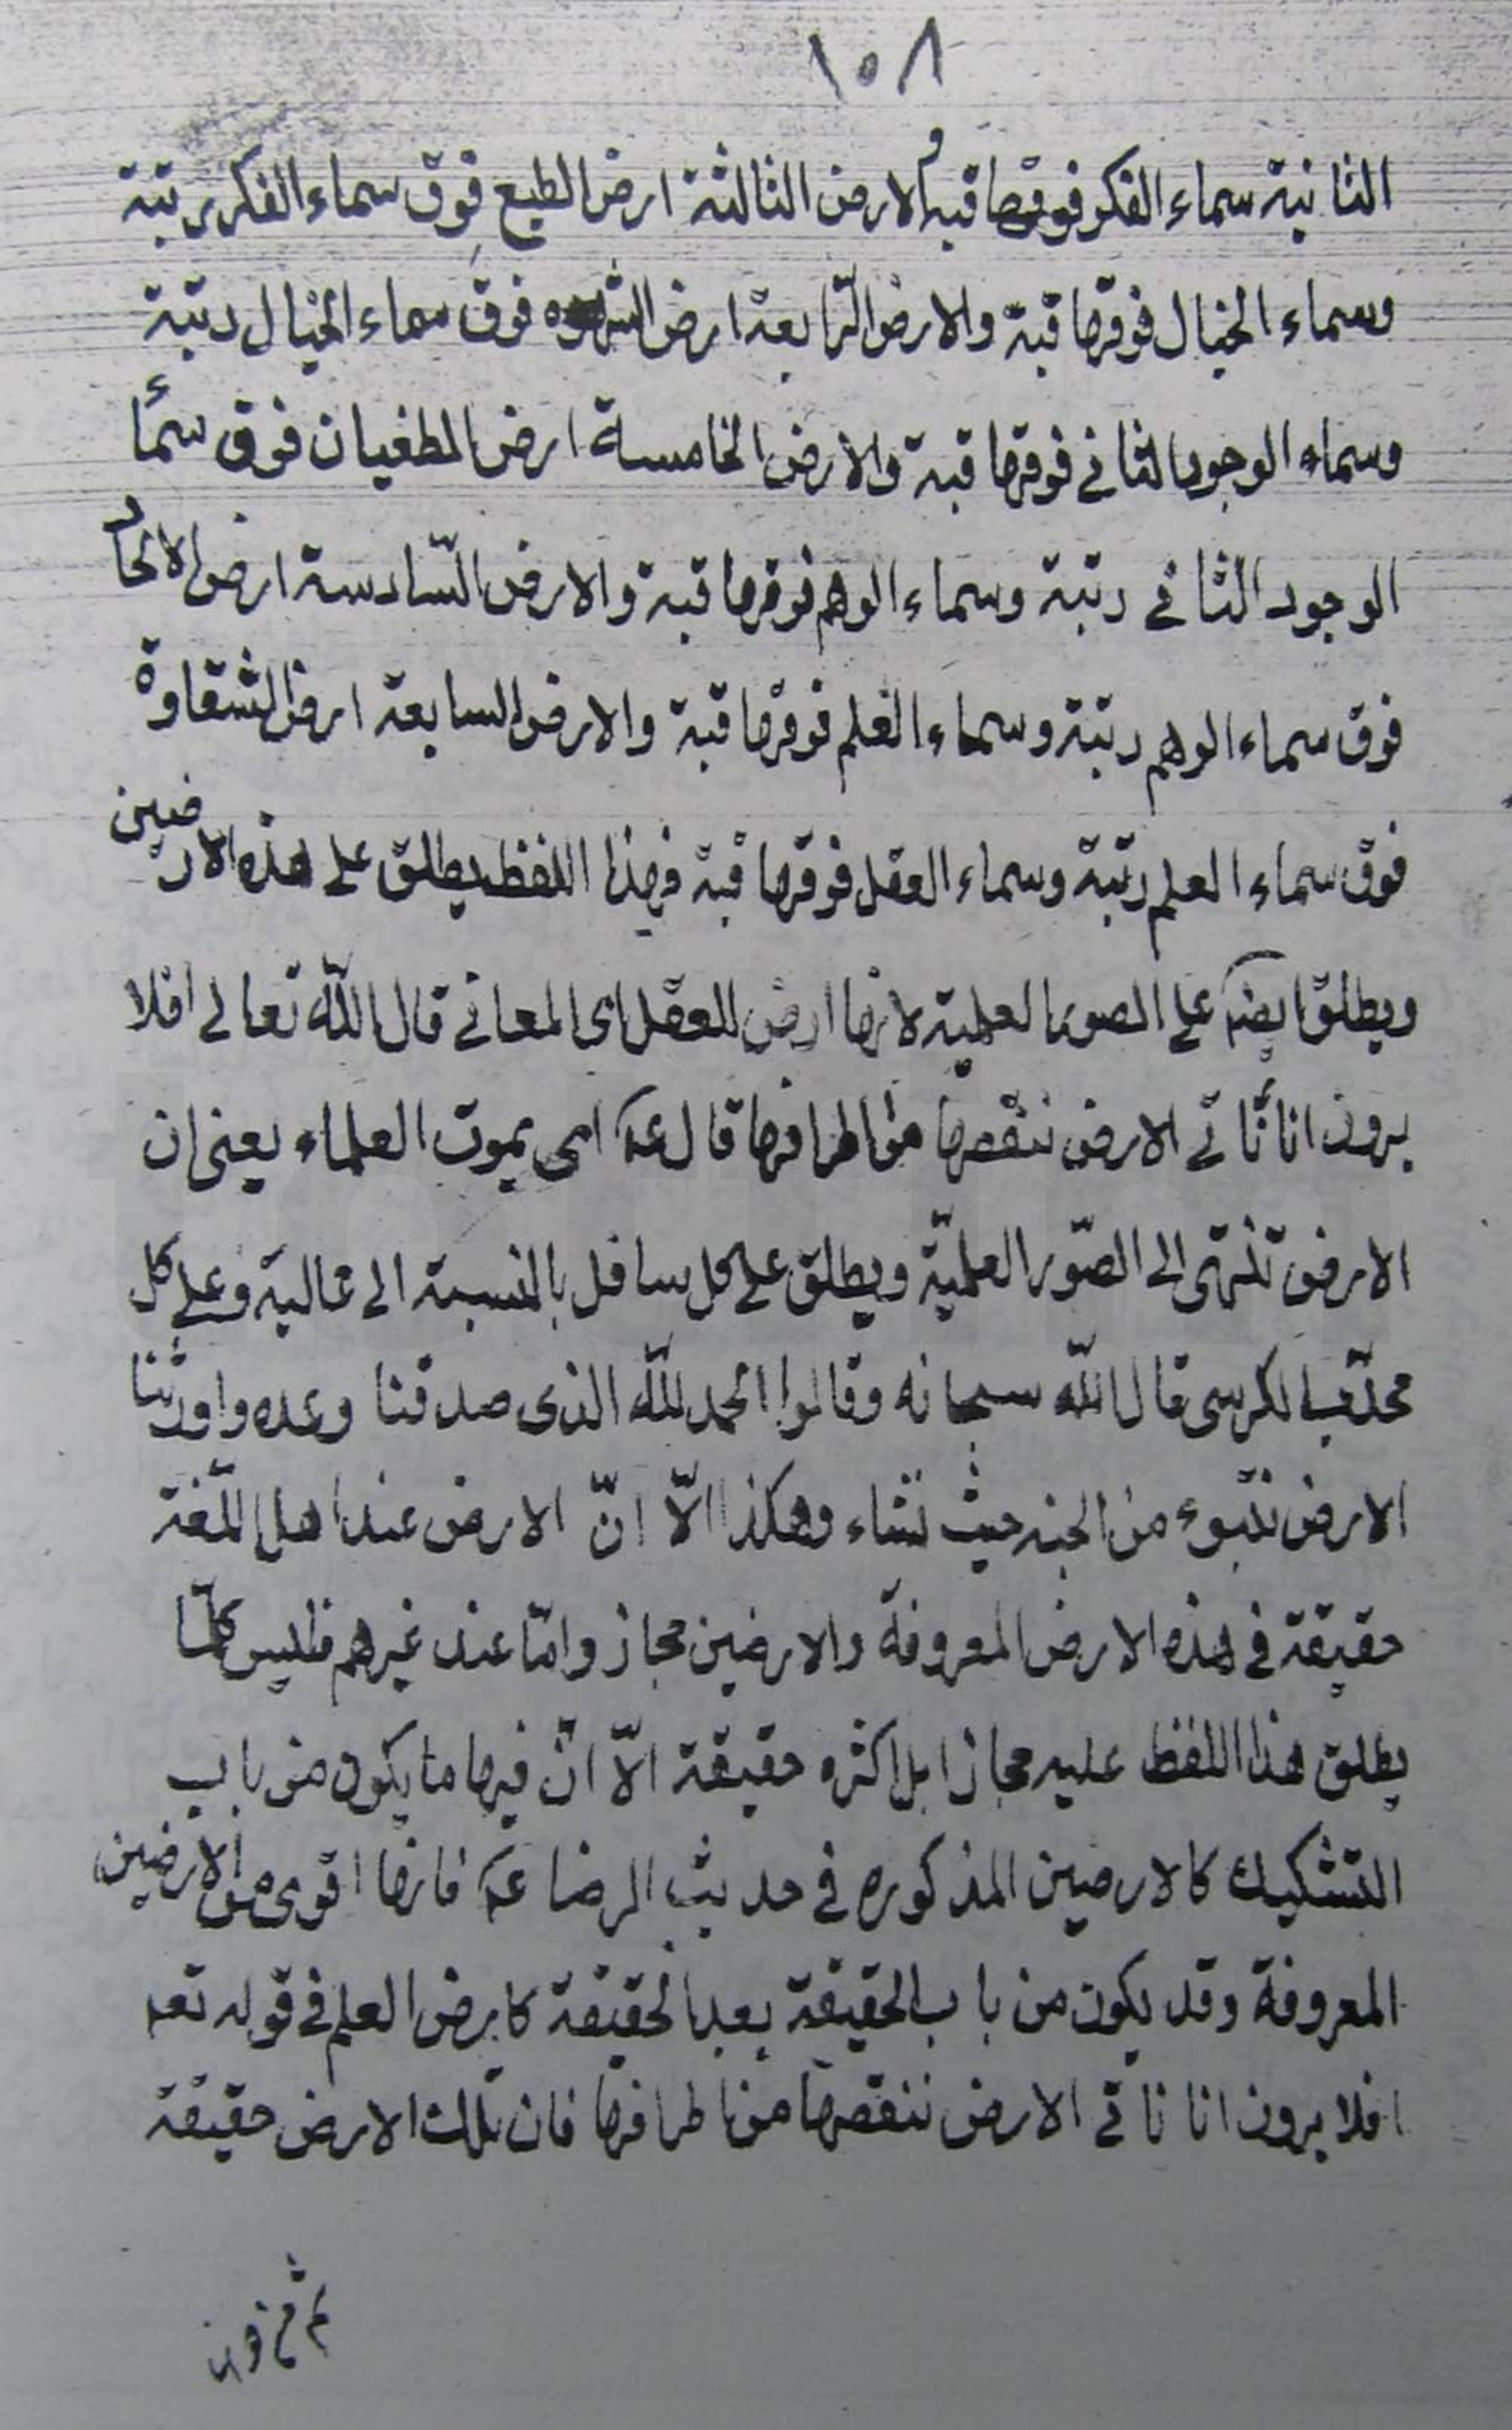 ١٠٨
الثانية سماء الفكر فوقها قبة والارض الثالثة ارض الطبع فوق سماء الفكر رتبة
وسماء الخيال فوقها قبة والارض الرّابعة ارض الشهوة فوق سماء الخيال رتبة
وسماء الوجود الثانى فوقها قبة والارض الخامسة ارض الطغيان فوق سماء
الوجود الثانى رتبة وسماء الوهم فوقها قبة والارض السّادسة ارض الالحاد
فوق سماء الوهم رتبة وسماء العلم فوقها قبة والارض السابعة ارض الشقاوة
فوق سماء العلم رتبة وسماء العقل فوقها قبة فهذا اللفظ يطلق على هذه الارضين
ويطلق ايضا على الصور العلمية لانها ارض العقل اى المعانى قال الله تعالى افلا
يرون انا نأتى الارض ننقصها من اطرافها قال عم اى بموت العلماء يعنى ان
الارض تنتهى الى الصّور العلميّة ويطلق على كل سافل بالنسبة الى عاليه وعلى كل
محدّب الكرسى قال الله سبحانه وقالوا الحمد لله الذى صدقنا وعده واورثنا
الارض نتبوء من الجنة حيث نشاء وهكذا الّا انّ الارض عند اهل اللّغة
حقيقة فى هذه الارض المعروفة والارضين مجاز وامّا عند غيرهم فليس كلّما
يطلق هذا اللفظ عليه مجازا بل اكثره حقيقة الّا انّ فيها ما يكون من باب
التشكيك كالارضين المذكوره فى حديث الرضا عم فانها اقوى من الارضين
المعروفة وقد يكون من باب الحقيقة بعد الحقيقة كارض العلم فى قوله تعم
افلا يرون انا ناتى الارض ننقصها من اطرافها فان تلك الارض حقيقة